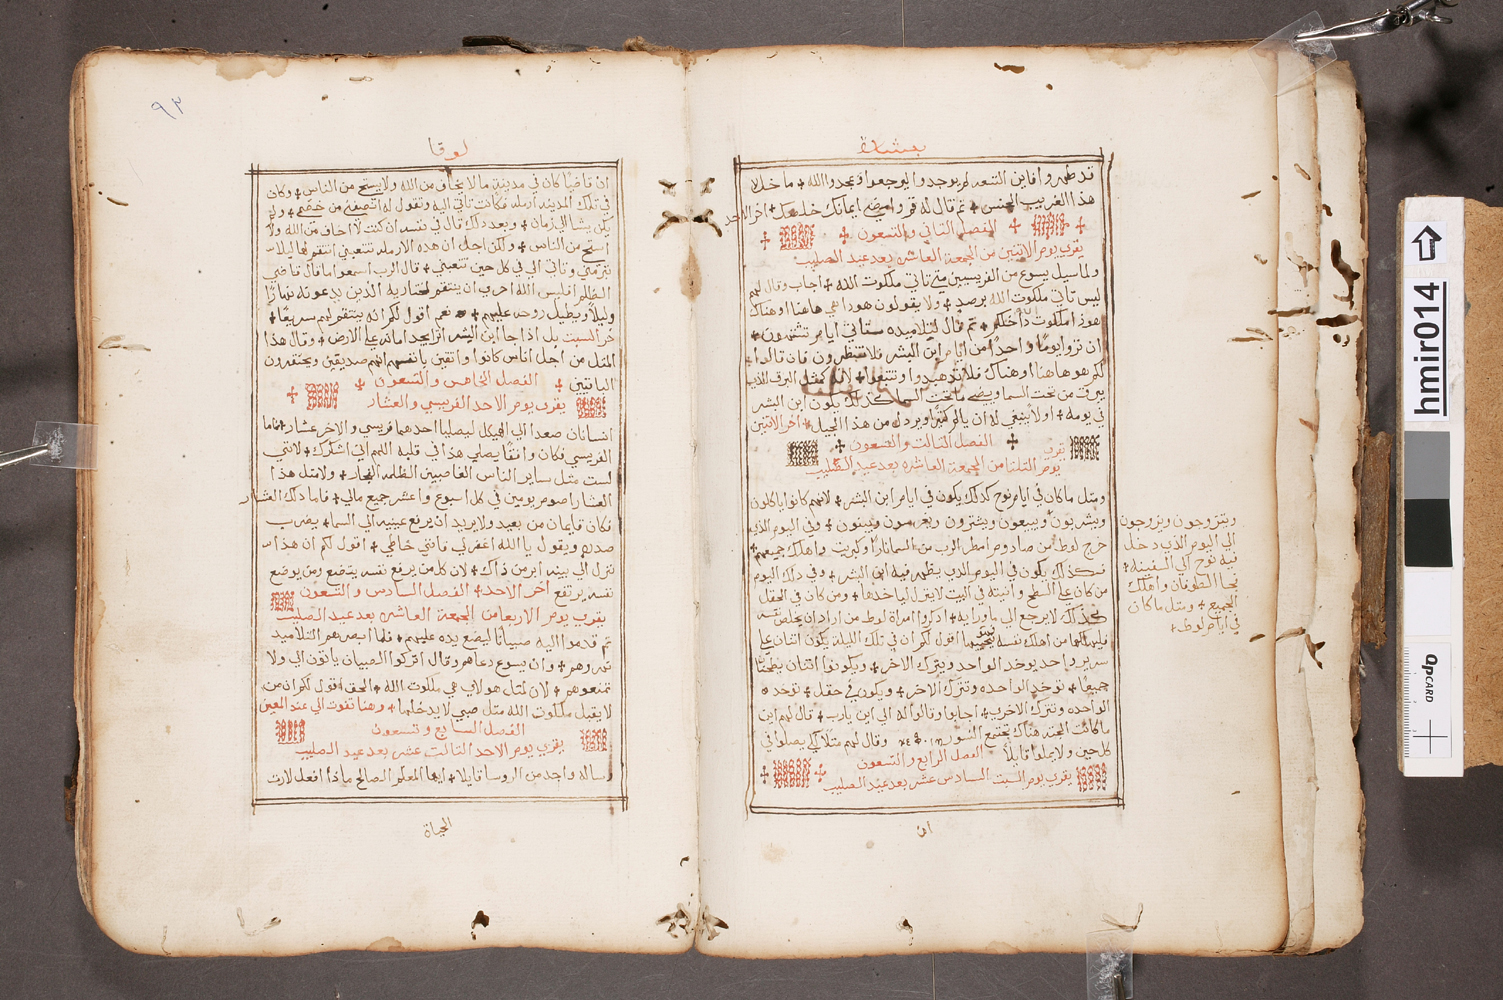 بشارة
قد طهروا فاين التسعه لم يوجدوا ليرجعوا ويمجدوا الله ✢ ما خلا
هذا الغريب الجنس ✢ ثم قال له قم وامضي ايمانك خلصك ✢ اخر الاحد
الفصل الثاني والتسعون
يقري يوم الاتنين من الجمعة العاشره بعد عيد الصليب
ولما سيل يسوع من الفريسيين متي تاتي ملكوت الله ✢ اجاب وقال لهم
ليس تاتي ملكوت الله برصد ✢ ولا يقولون هوذا هي هاهنا او هناك
هوذا ملكوت الله داخلكم ✢ ثم قال لتلاميذه ستاتي ايام تشتهون
ان تروا يومًا واحدًا من ايام ابن البشر فلا تنظرون فان قالوا
لكم هو هاهنا او هناك فلا تذهبوا وتتبعوا ✢ لانه كمثل البرق الذي
يبرق من تحت السما ويضي ماتحت السما كذلك يكون ابن البشر
في يومه ✢ اولا ينبغي له ان يالم كثيرا ويرذل من هذا الجيل ✢ اخر الاتنين
الفصل الثالت والتسعون
يقري
يوم التلتا من الجمعة العاشره بعد عيد الصليب
ومثل ما كان في ايام نوح كذلك يكون في ايام ابن البشر ✢ لانهم كانوا ياكلون
ويشربون ويبيعون ويشترون ويغرسون ويبنون ✢ وفي اليوم الذي
خرج لوط من صادوم امطر الرب من السما نارًا وكبريت واهلك جميعهم ✢
فكذلك يكون في اليوم الذي يظهر فيه ابن البشر ✢ وفي ذلك اليوم
من كان علي السطح وانيته في البيت لا ينزل لياخذها ✢ ومن كان في الحقل
كذلك لا يرجع الي ما ورايه ✢ اذكروا امراة لوط من اراد ان يخلص نفسه
فليهلكها ومن اهلك نفسه اقول لكم ان في تلك الليلة يكون اتنان علي
سرير واحد يوخد الواحد ويترك الاخر ✢ ويكونوا اتنتان يطحنتا
جميعًا ✢ توخد الواحده وتترك الاخر ✢ ويكون في حقل ✢ توخد
الواحده وتترك الاخري ✢ اجابوا وقالوا له الي اين يارب ✢ قال لهم اين
ما كانت الجثه هناك تجتمع النسور وقال لهم مثلا لكي يصلوا في
كل حين ولا يملوا قايلًا الفصل الرابع والتسعون
يقري يوم السبت السادس عشر بعد عيد الصليب
ان
ويتزوجون ويزوجون
الي اليوم الذي دخل
فيه نوح الي السفينه ✢
جا الطوفان واهلك
الجميع ✢ ومثل ما كان
في ايام لوط ✢
٩٣
لوقا
ان قاضيًا كان في مدينةٍ ما لا يخاف من الله ولا يستحي من الناس ✢ وكان
في تلك المدينه ارمله فكانت تاتي اليه وتقول له انصفني من خصمي ✢ ولم
يكن يشا الي زمان ✢ وبعد ذلك قال في نفسه ان كنت لا اخاف من الله ولا
استحي من الناس ✢ ولكن اجل ان هذه الارمله تتعبني انتقم لها ليلا
تبرمني وتاتي الي في كل حين تتعبني ✢ قال الرب اسمعوا ما قال قاضي
الظلم افليس الله احري ان ينتقم لمختاريه الذين يدعونه نهارًا
وليلًا ويطيل روحه عليهم ✢ نعم اقول لكم انه ينتقم لهم سريعًا ✢
خر السبت بل اذا جا ابن البشر اترا يجد امانه علي الارض ✢ وقال هذا
المثل من اجل اناس كانوا واثقين بانفسهم انهم صديقين ويحتقرون
الباقين ✢ الفصل الخامس والتسعون
يقري يوم الاحد الفريسي والعشار
انسانان صعدا الي الهيكل ليصليا احدهما فريسي والاخر عشار ✢ فاما
الفريسي فكان واقفًا يصلي هذا في قلبه اللهم اني اشكرك ✢ لانني
لست مثل ساير الناس الغاصبين الظلمه الفجار ✢ ولا مثل هذا
العشار اصوم يومين في كل اسبوع واعشر جميع مالي ✢ فاما ذلك العشار
فكان قايمان من بعيد ولا يريد ان يرفع عينيه الي السما ✢ يضرب
صدره ويقول يا الله اغفر لي فانني خاطي ✢ اقول لكم ان هذا
نزل الي بيته ابر من ذاك ✢ لان كل من يرفع نفسه يتضع ومن يوضع
نفسه يرتفع اخر الاحد ✢ الفصل السادس والتسعون
يقري يوم الاربعا من الجمعة العاشره بعد عيد الصليب
ثم قدموا اليه صبيانًا ليضع يده عليهم ✢ فلما ابصرهم التلاميد
نهروهم ✢ وان يسوع دعاهم وقال اتركوا الصبيان ياتون الي ولا
تمنعوهم ✢ لان لمثل هولاي هي ملكوت الله ✢ الحق اقول لكم ان من
لا يقبل ملكوت الله مثل صبي لا يدخلها ✢ وهنا تفوت الي عند
الفصل السابع وتسعون
يقري يوم الاحد التالت عشر بعد عيد الصليب
وساله واحد من الروسا قايلا ✢ ايها المعلم الصالح ماذا افعل لارت
الحياة
hmir014
QpCARD